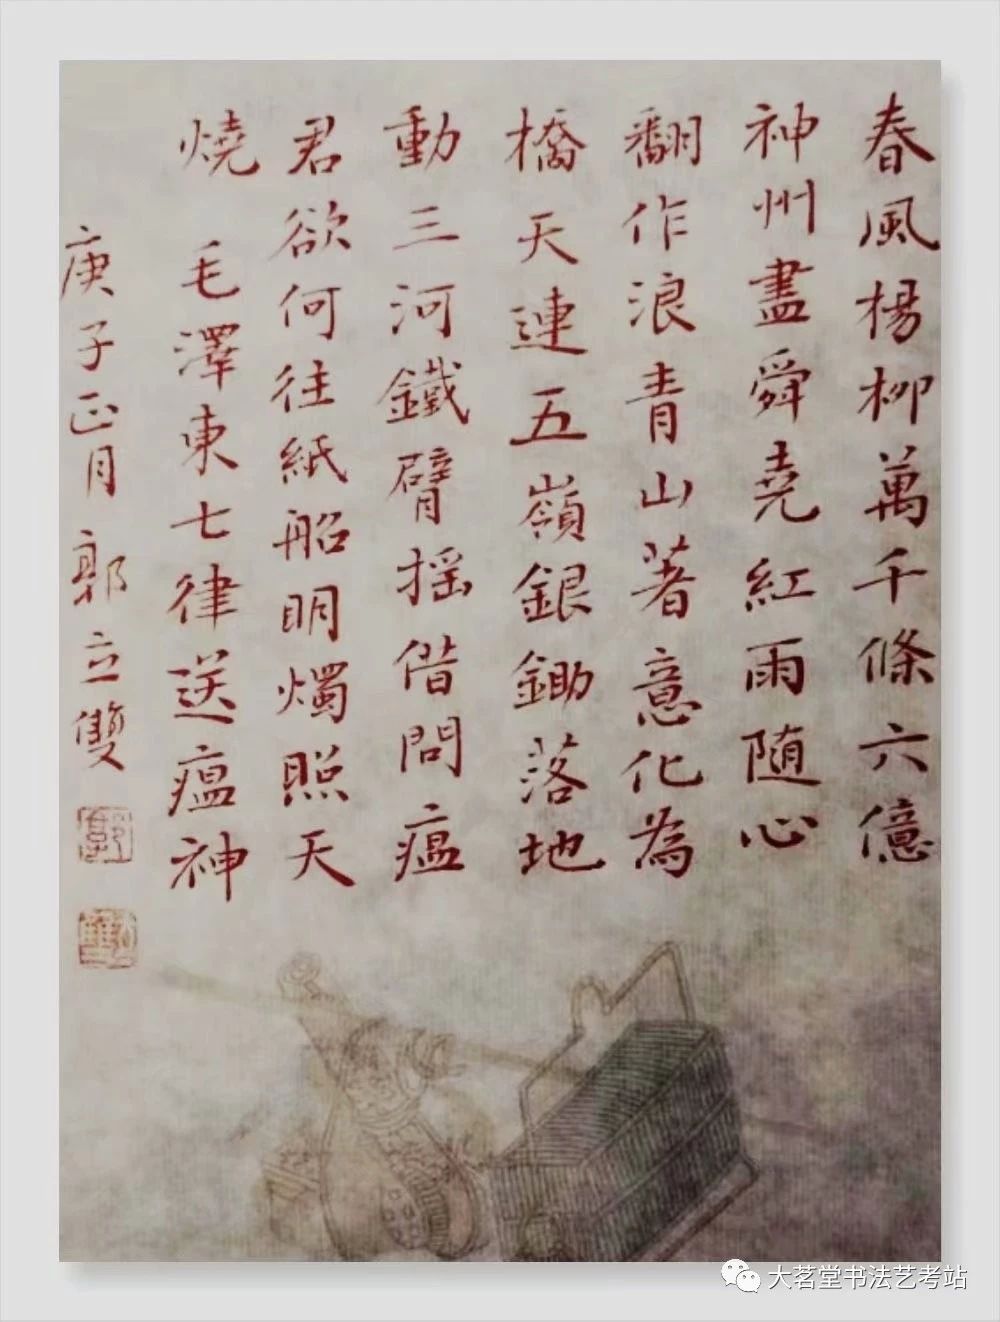 春風楊柳萬千條六億
神州盡舜堯紅雨随心
翻作浪青山著意化為
橋天連五嶺銀鋤落地
動三河鐵臂摇借問瘟
君欲何往紙船明燭照天
燒 毛澤東七律送瘟神
庚子正月郭立雙
大茗堂书法艺考站